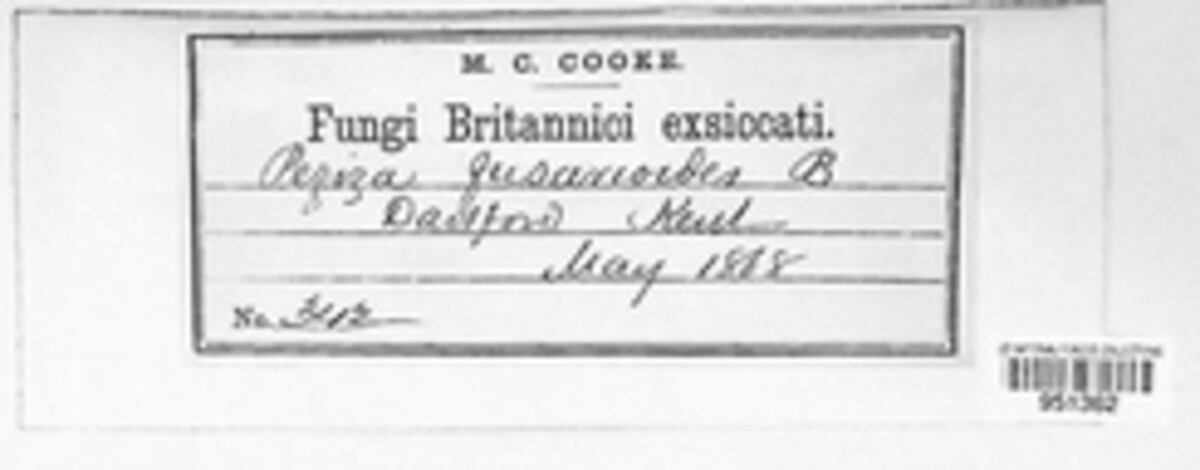 M. C. COOKE.
Fungi Britannici exsiccati.
Peziza fusarioides B
Dartford Kent
May 1868
No.
951362